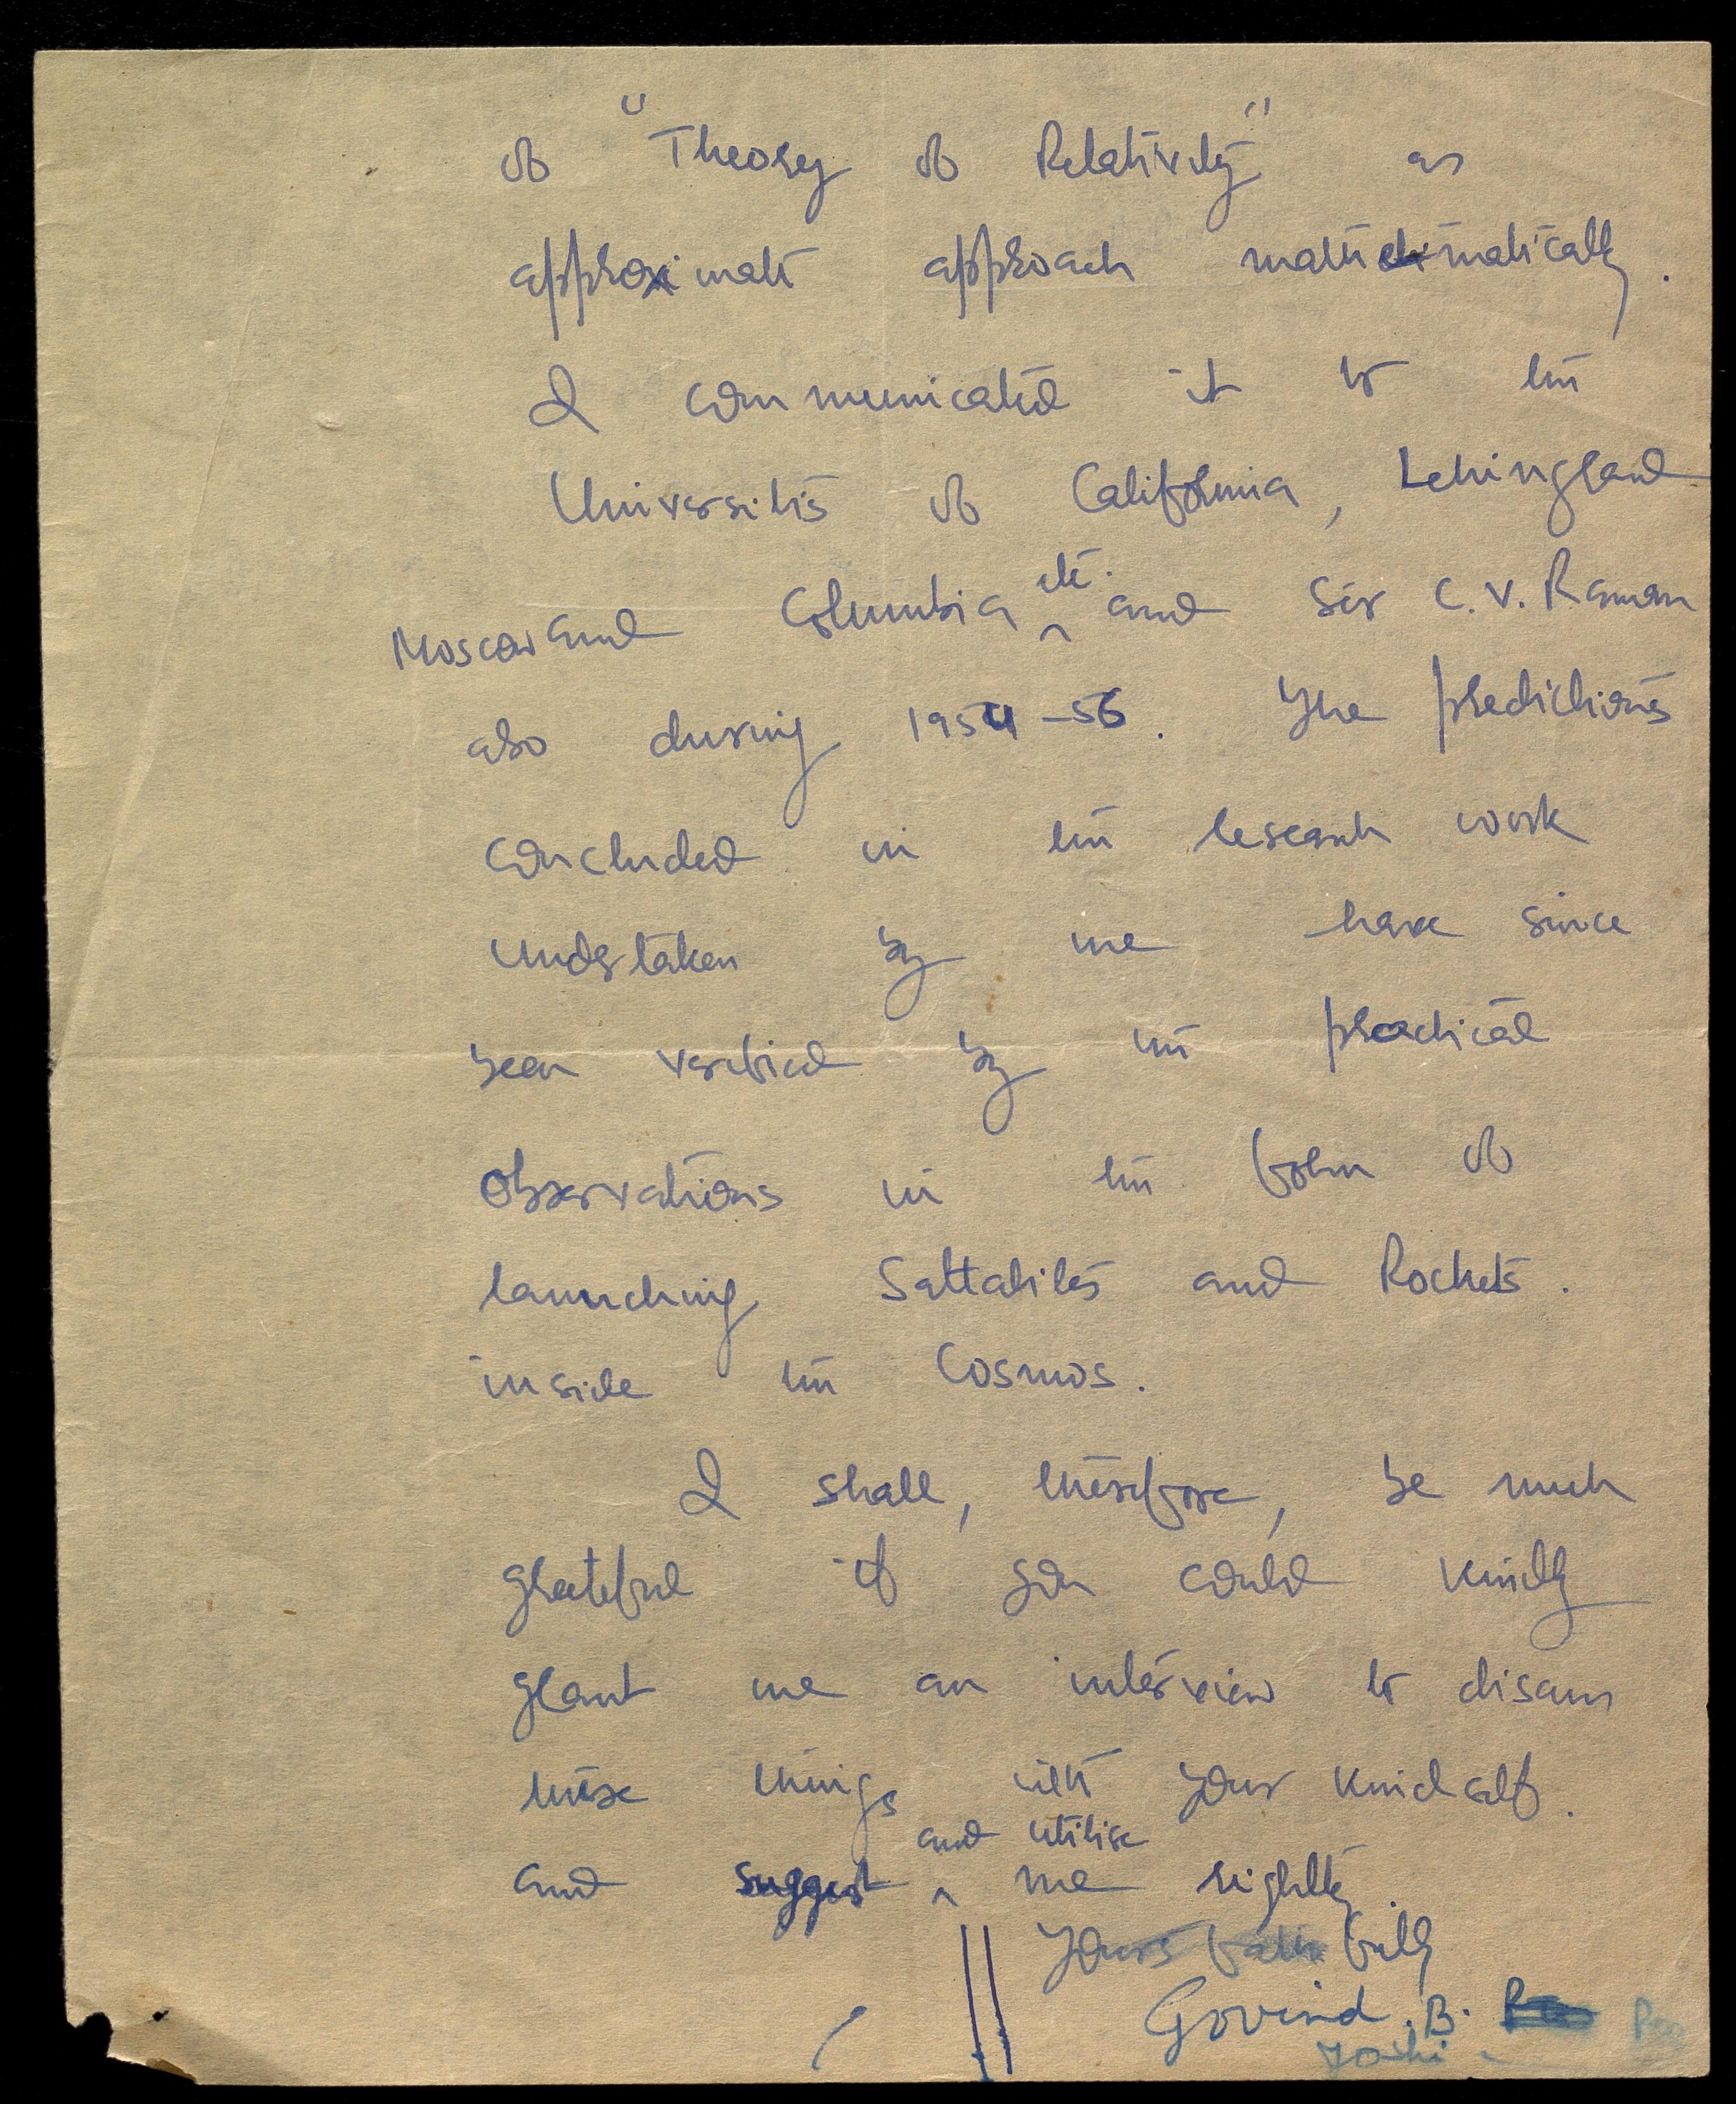 of "Theory of Relativity" as
approximate approach mathematically.
I communicated it to the
Universities of California, Leningrad
Moscow and Columbia etc. and Sir C. V. Raman
also during 1954-56. The predictions
concluded in the research work
undertaken by me have since
been verified by the practical
observations in the form of
launching Sattalites and Rockets.
inside the Cosmos.
I shall, therefore, be much
grateful if you could kindly
grant me an interview to discuss
these things with your kindself.
and suggest and utilise me rightly.
Yours faithfully
Govind. B.
Joshi